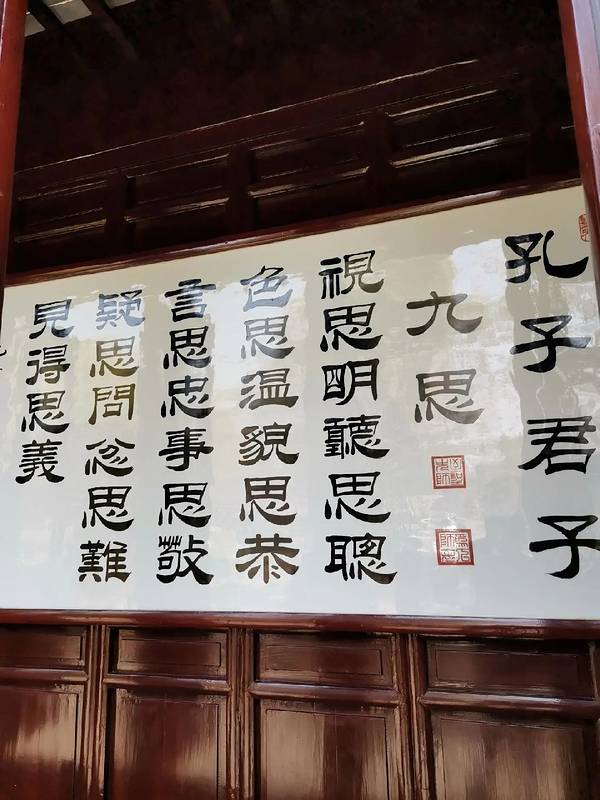 孔子君子
九思
視思明聽思聰
色思温貌思恭
言思忠事思敬
疑思問忿思難
見得思義